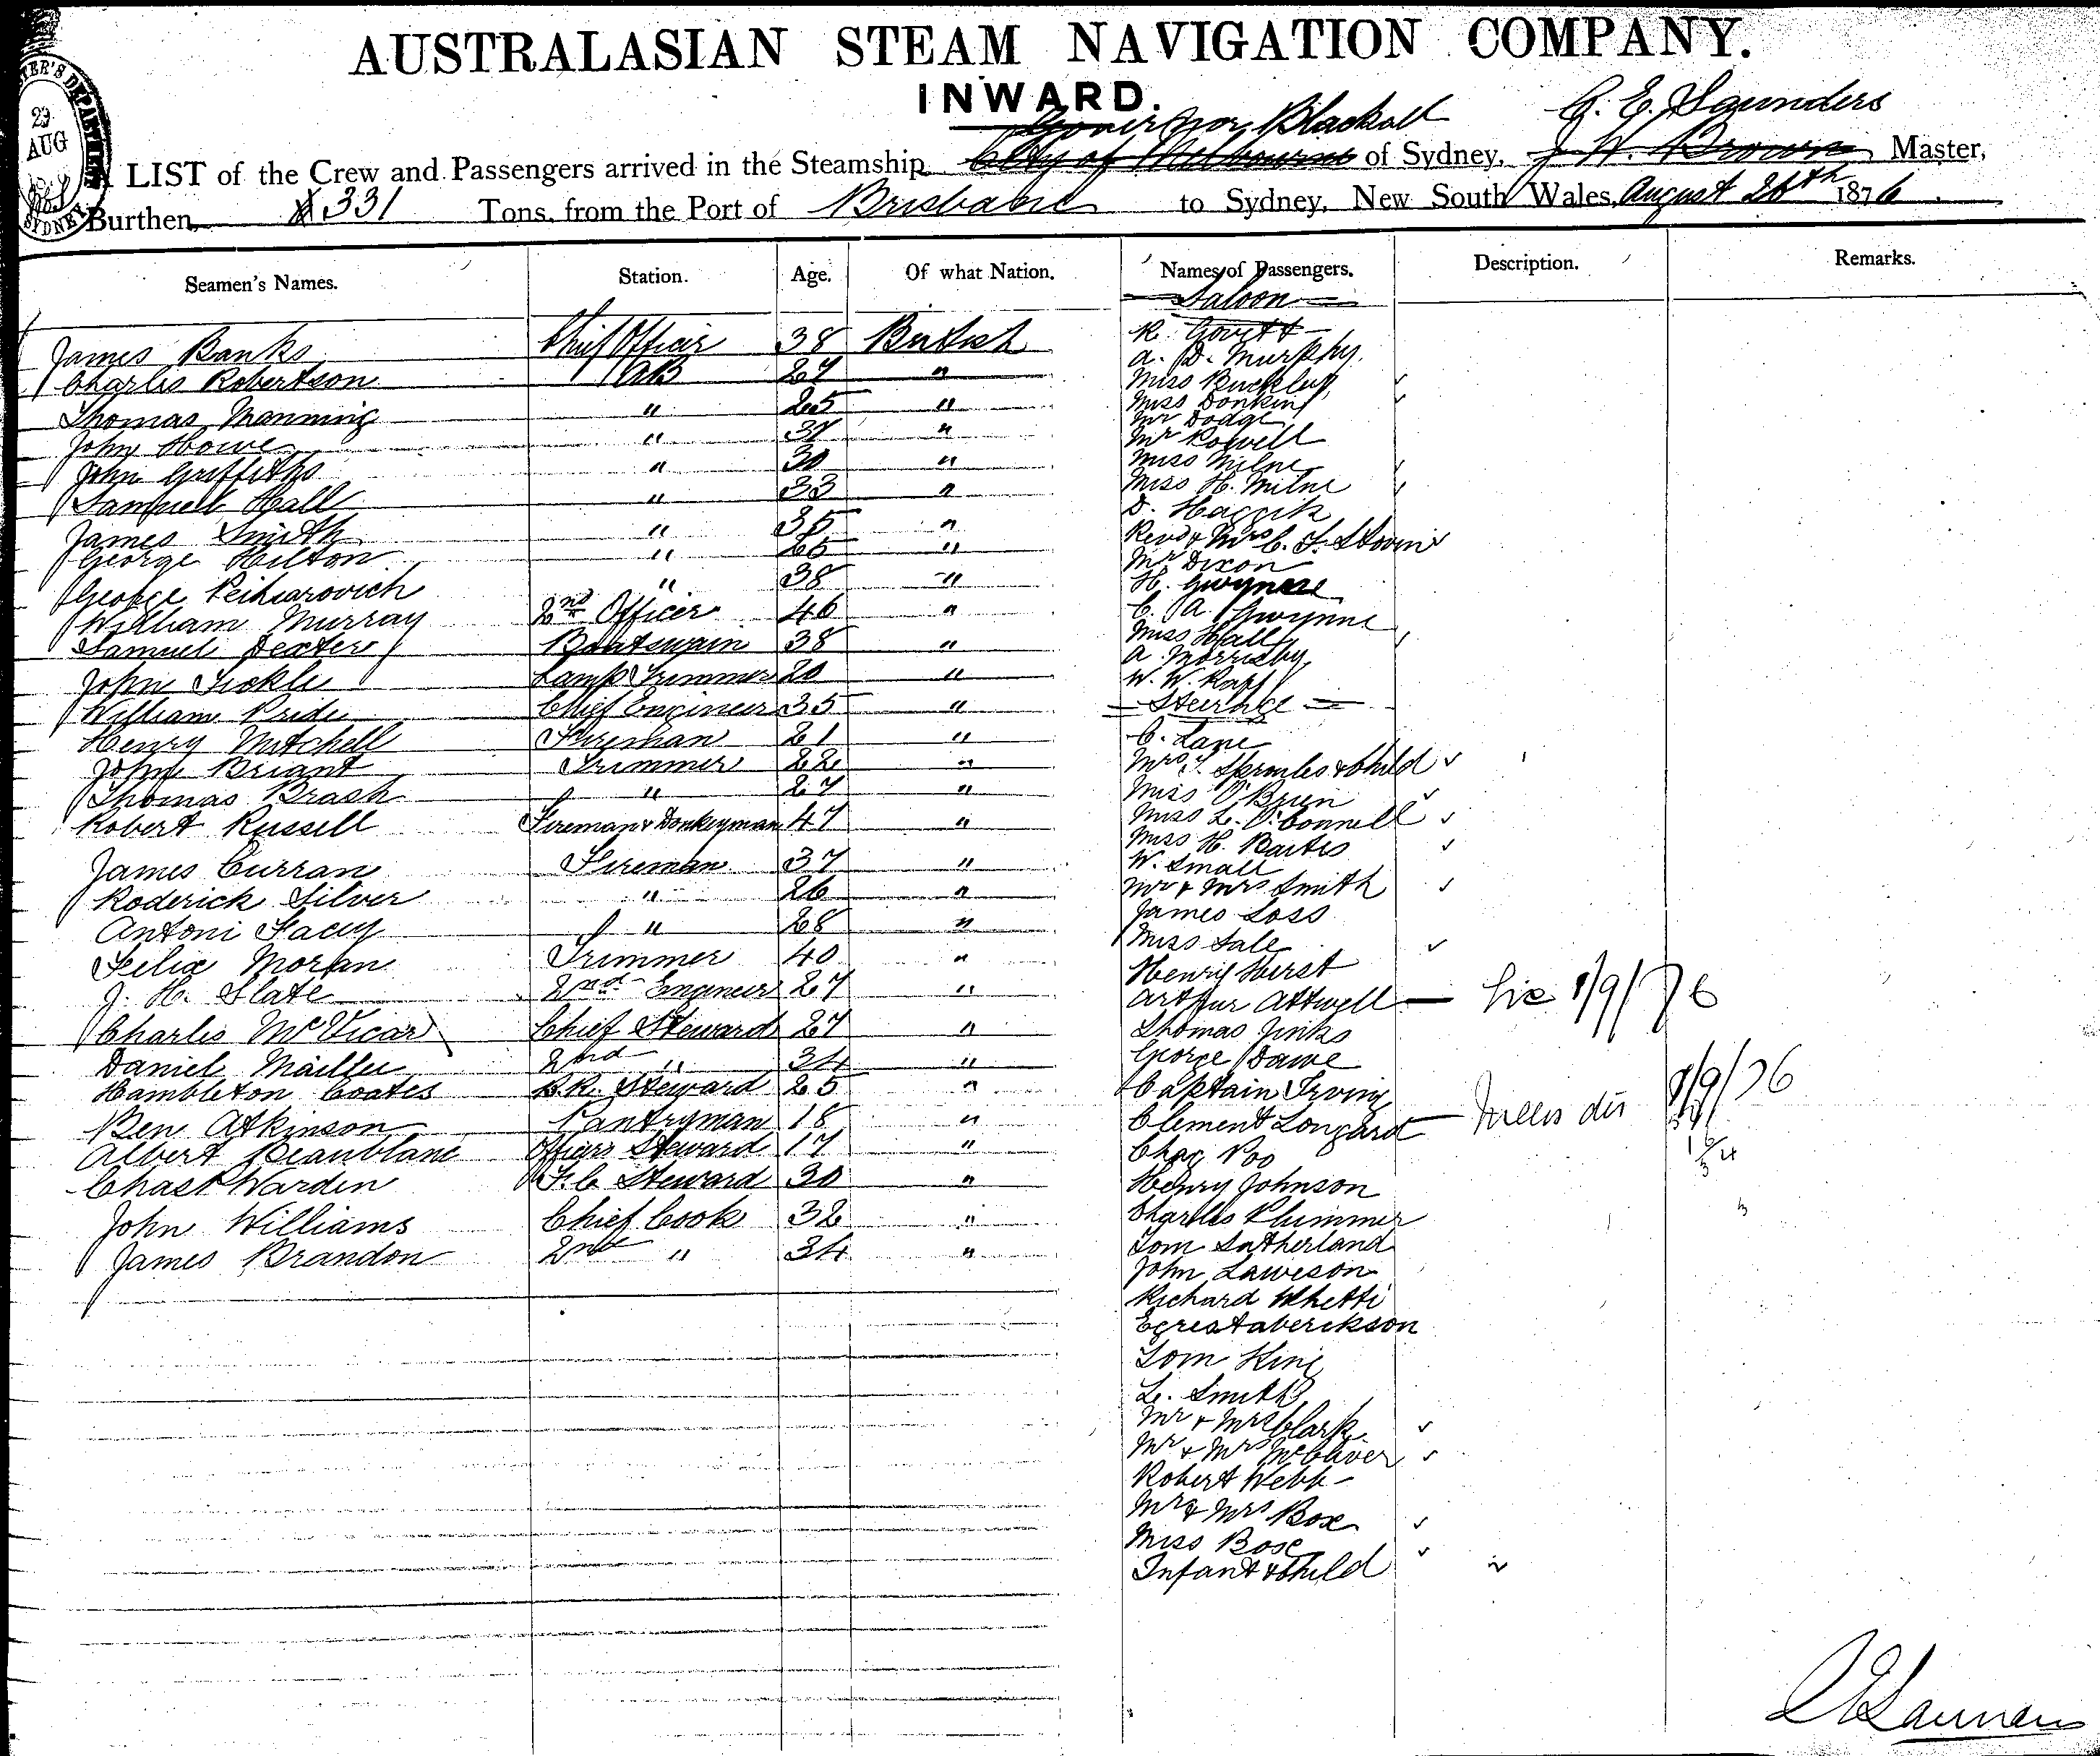 AUSTRALASIAN STEAM NAVIGATION COMPANY.
INWARD.
Governor Blackall G. E. Saunders
A LIST of the Crew and Passengers arrived in the Steamship City of Melbourne of Sydney, J W. Brown Master,
Burthen 331 Tons, from the Port of Brisbane to Sydney, New South Wales, August 26th 1876
23
AUG
SYDNEY
Seamen's Names. Station. Age. Of what Nation. Names of Passengers. Description. Remarks.
James Banks Chief Officer 38 British
Charles Robertson AB 27 "
Thomas Manning " 25 "
John Howe " 37 "
John Griffiths " 30 "
Samuel Hall " 33 "
James Smith " 35 "
George Hilton " "
George " 38 "
William Murray 2nd Officer 46 "
Samuel Dexter Boatswain 38 "
John Sickle Lamp Trimmer 20 "
William Pride Chief Engineer 35 "
Henry Mitchell Fireman 21 "
John Briant Trimmer 22 "
Thomas Brash " 27 "
Robert Russell Fireman & Donkeyman 47 "
James Curran Fireman 37 "
Roderick Silver " 26 "
Antoni Facey " 28 "
Felix Moran Trimmer 40 "
J. H. Slate 2nd Engineer 27 "
Charles McVicar Chief Steward 27 "
Daniel 2nd " 34 "
Hambleton Coates Steward 25 "
Ben Atkinson Pantryman 18 "
Albert Officers Steward 17 "
Chas Warden F. C Steward 30 "
John Williams Chief Cook 32 "
James Brandon 2nd " 34 "
Saloon
R. Govett
A. D. Murphy
Miss Buckley
Miss Donkin
Mr Dodge
Mr Rowell
Miss Milne
Miss H. Milne
D.
Revd & Mrs C. F.
Mr Dixon
H. Gwynne
C. A. Gwynne
Miss Hall
A. Morrisby
W. W.
Steerage
C. Lane
Mrs & Child
Miss O'Brien
Miss L. O'Connell
Miss H. Bartes
W. Small
Mr & Mrs Smith
James Loss
Miss Sale
Henry Hurst
Arthur Attwell 1/9/76
Thomas Jinks
George Dawe
Captain Irving
Clement Longard 8/9/76
Chas Poo
Henry Johnson
Charles Plummer
Tom Sutherland
John Laweson
Richard Whetti
Tom King
L. Smith
Mr & Mrs Clark
Mr & Mrs McCliver
Robert Webb
Mr & Mrs Box
Miss Bose
Infant & Child